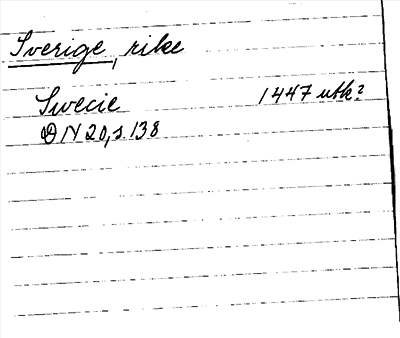 Sverige, rike
Swecie 1447 utk?
DN 20, s. 138